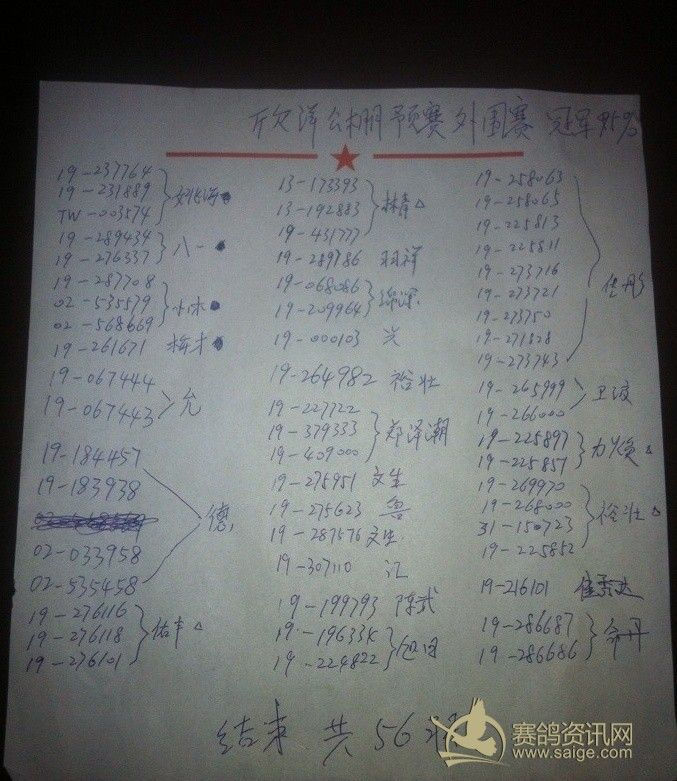 欣洋公棚预赛外围赛 冠军95%
19-237764
19-231889
TW-003574
19-289434
19-276337
八一
19-287708
02-535579
02-568669
小林
19-261671
19-067444
19-067443
允
19-184457
19-183938
02-033958
02-535458
德
19-276116
19-276118
19-276101
13-173393
13-192883
19-431777
林青
19-289786
19-068086
19-209964
19-000103
19-264982 裕壮
19-227722
19-379333
19-409000
郑泽潮
19-275951 文生
19-275623 鲁
19-287576 文生
19-307110 汇
19-199793 陈武
19-196334
19-224822
19-258063
19-258065
19-225813
19-225811
19-273716
19-273721
19-273750
19-271828
19-273743
佳彤
19-265999
19-266000
卫波
19-225897
19-225857
19-269970
19-268000
31-150723
19-225852
裕壮
19-216101
19-286687
19-286686
结束 共56羽
赛鸽资讯网
www.saige.com